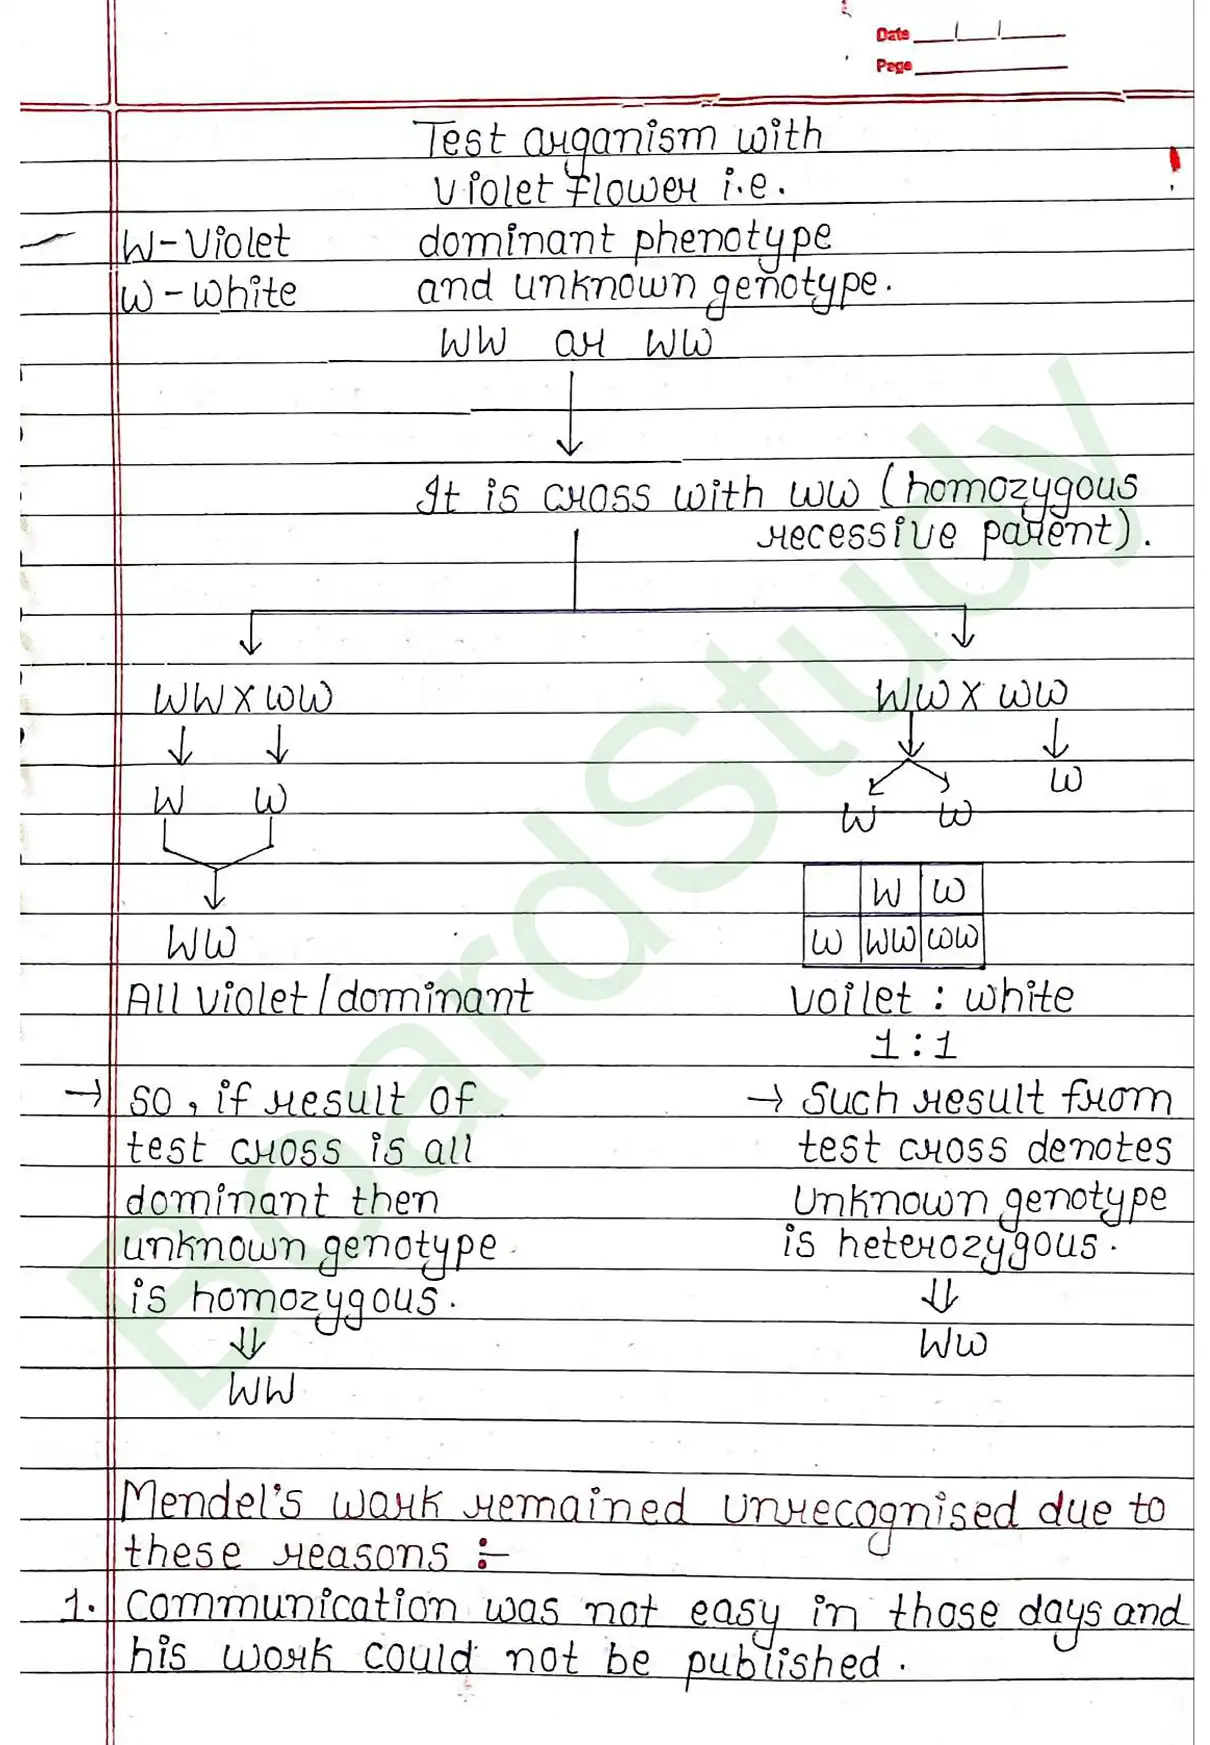 Date
Page
Test organism with
violet flower i.e.
W - Violet dominant phenotype
w - white and unknown genotype.
WW or Ww
It is cross with ww (homozygous
recessive parent).
WW X ww Ww X ww
W w w
W w
W w
Ww w Ww ww
All violet / dominant voilet : white
1 : 1
→ So, if result of
test cross is all
dominant then
unknown genotype
is homozygous.
⇓
WW
→ Such result from
test cross denotes
unknown genotype
is heterozygous.
⇓
Ww
Mendel's work remained unrecognised due to
these reasons :-
1. Communication was not easy in those days and
his work could not be published.
BoardStudy